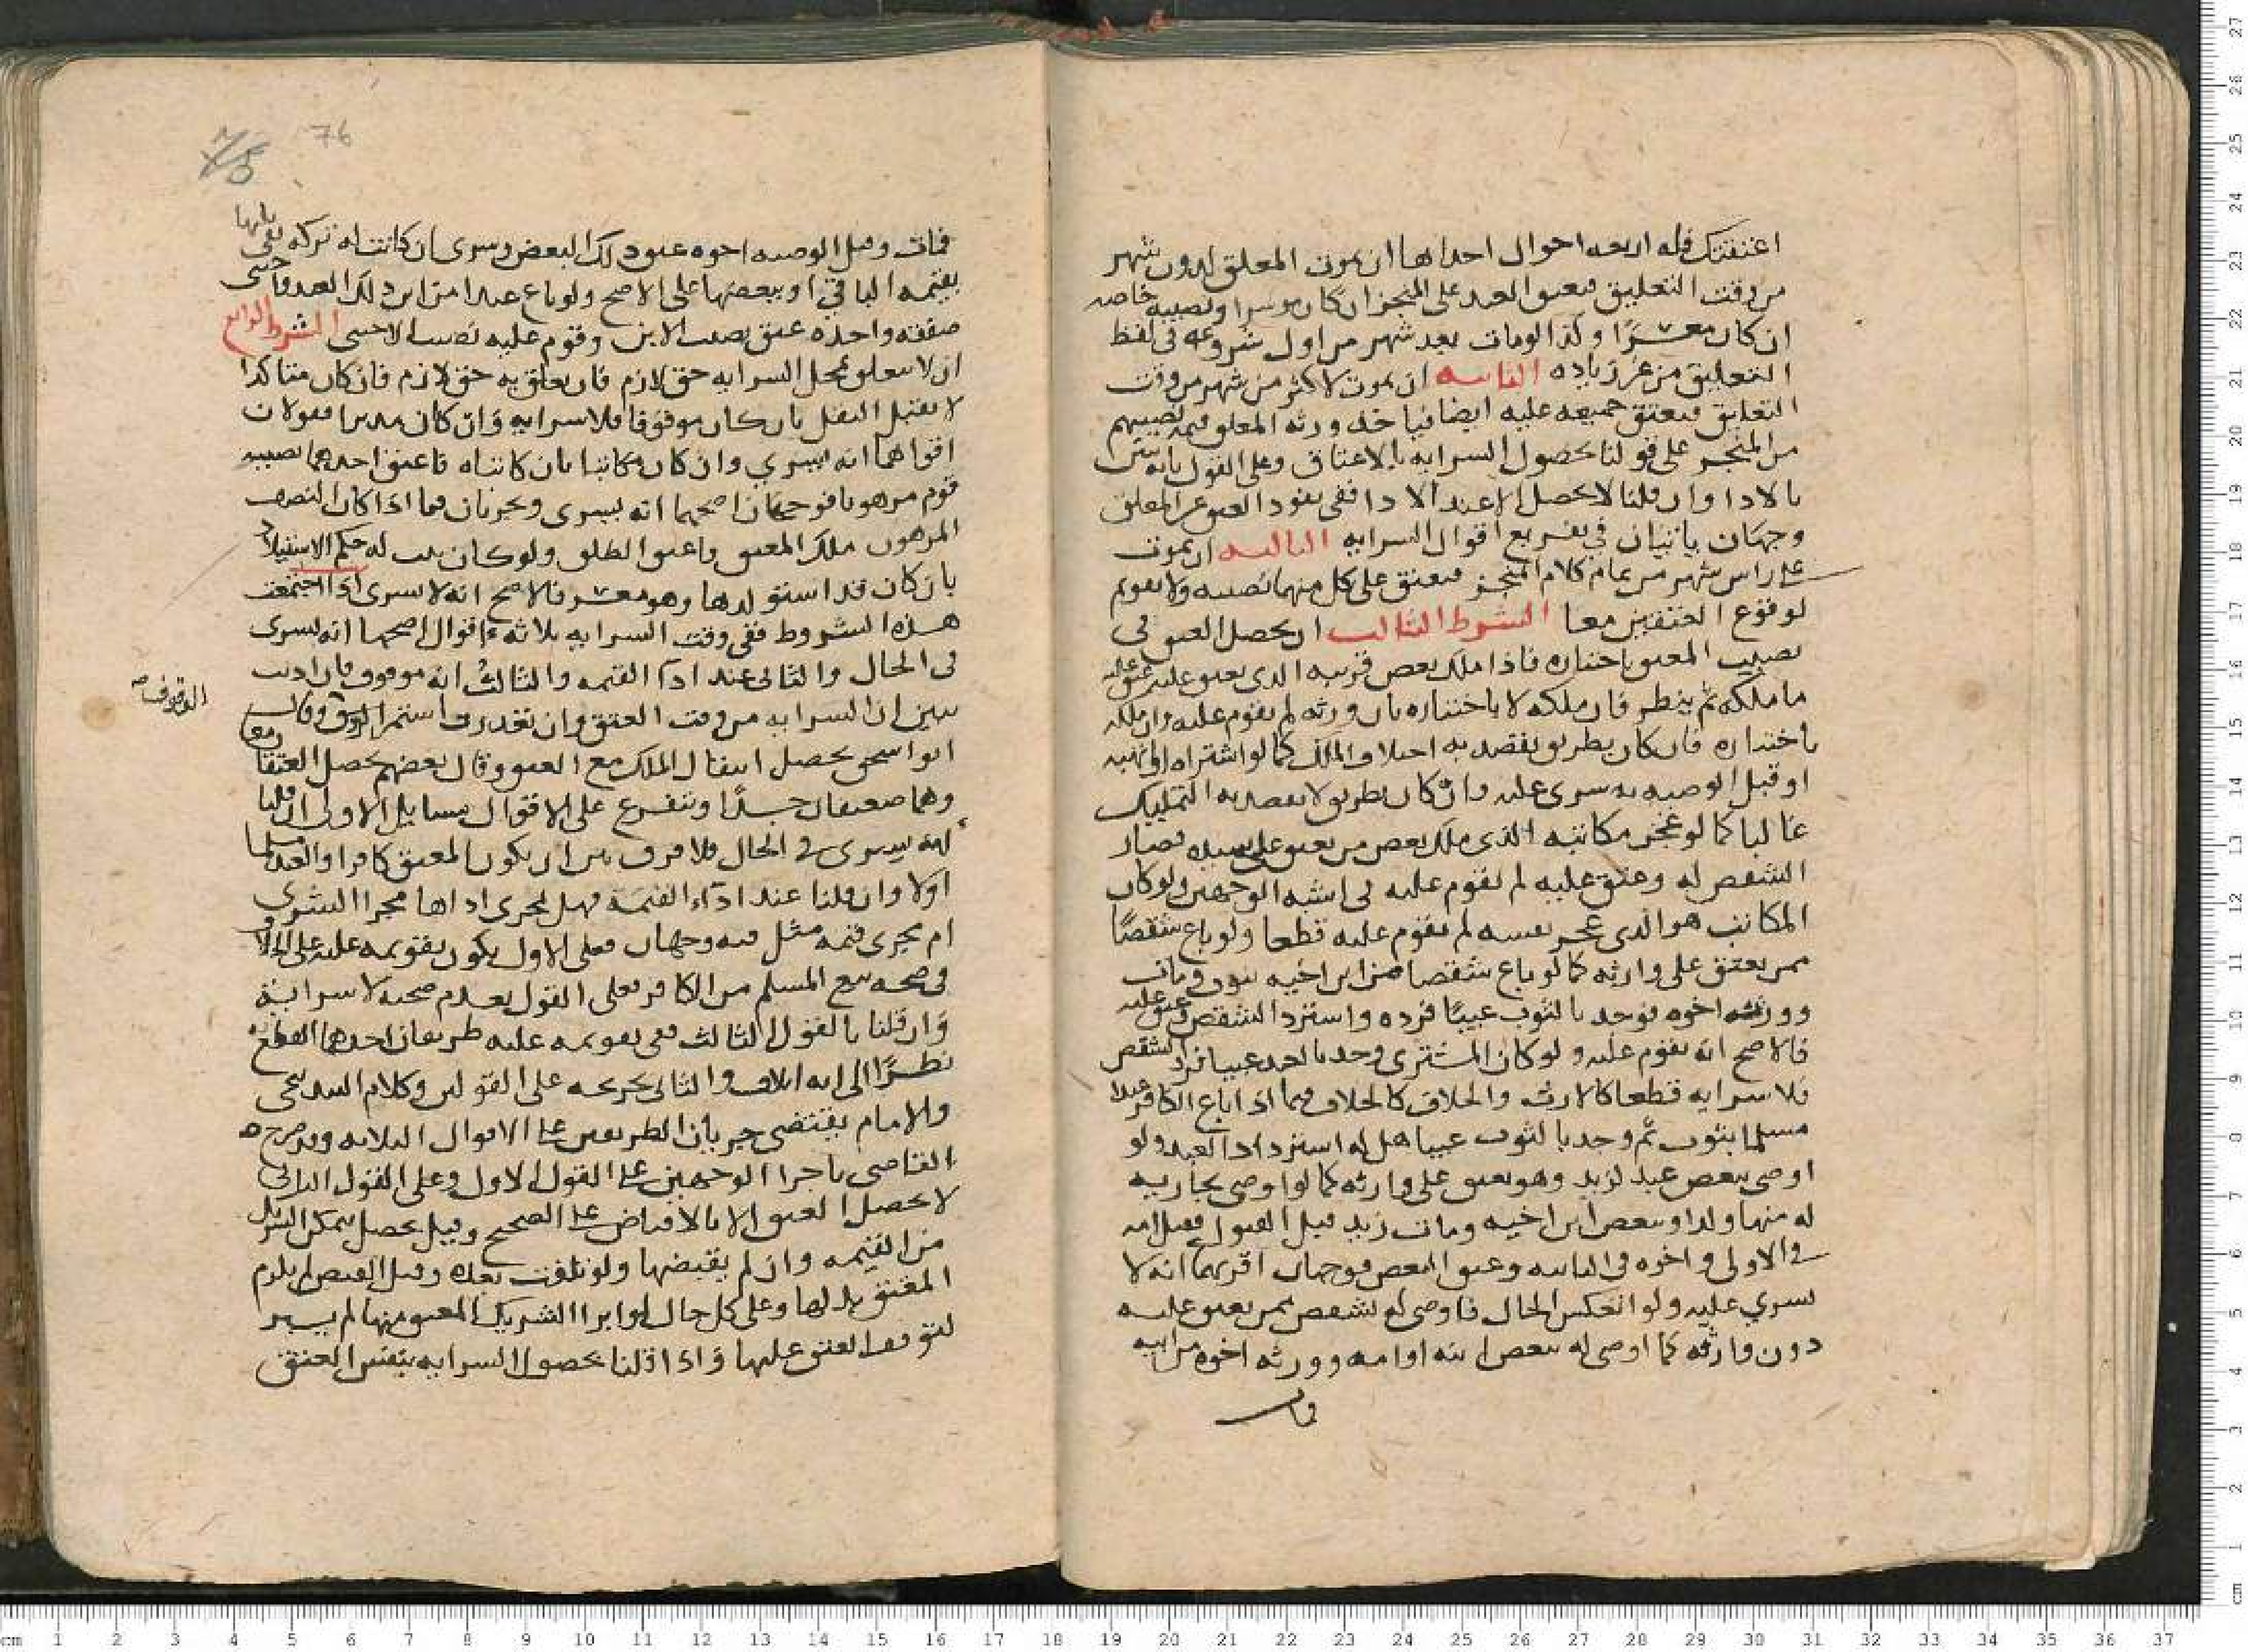 اعتقتك فله اربعه احوال احداها ان يموت المعلق لدون شهر
من وقت التعليق فيعتق العبد على المنجز ان كان موسرا ونصيبه خاصه
ان كان معسرا وكذا لومات بعد شهر من اول شروعه في لفظ
التعليق من غير زياده الثانيه ان يموت لاكثر من شهر من وقت
التعليق فيعتق جميعه عليه ايضا فياخذ ورثه المعلق قيمه نصيبهم
من المنجز على قولنا بحصول السرايه بالاعتاق وعلى القول بانه يتبين
بالادا وان قلنا لا يحصل الا عند الادا ففي نفوذ العتق عن المعلق
وجهان ياتيان في تفريع اقوال السرايه الثالثه ان يموت
على راس شهر من تمام كلام المنجز فيعتق على كل منهما نصيبه ولا تقويم
لوقوع العتقين معا الشرط الثالث ان يحصل العتق في
نصيب المعتق باختياره فاذا ملك بعض قريبه الذي يعتق عليه عتق عليه
ما ملكه ثم ينظر فان ملكه لا باختياره بان ورثه لم يقوم عليه وان ملكه
باختياره فان كان بطريق يقصد به اجتلاب الملك كما لو اشتراه او اتهبه
او قبل الوصيه به سرى عليه وان كان بطريق لا يقصد به التمليك
غالبا كما لو عجز مكاتبه الذي ملك بعض من يعتق على سيده فصار
الشقص له وعتق عليه لم يقوم عليه في اشبه الوجهين ولو كان
المكاتب هو الذي عجز نفسه لم يقوم عليه قطعا ولو باع شقصا
ممن يعتق على وارثه كما لو باع شقصا من ابن اخيه بثوب ومات
وورثه اخوه فوجد بالثوب عيبا فرده واسترد الشقص وعتق عليه
فالاصح انه يقوم عليه ولو كان المشتري وجد بالعبد عيبا فرد الشقص
فلا سرايه قطعا كالارث والخلاف كالخلاف فيما اذا باع الكافر عبدا
مسلما بثوب ثم وجد بالثوب عيبا هل له استرداد العبد ولو
اوصى ببعض عبد لزيد وهو يعتق على وارثه كما لو اوصى بجاريه
له منها ولد او ببعض ابن اخيه ومات زيد قبل القبول فقبل ابنه
في الاولى واخوه في الثانيه وعتق البعض فوجهان اقربهما انه لا
يسري عليه ولو انعكس الحال فاوصى له بشقص ممن يعتق عليه
دون وارثه كما اوصى له ببعض ابنه او امه وورثه اخوه من ابيه
فات
76
75
فمات وقبل الوصيه اخوه عتق ذلك البعض وسرى ان كانت له تركه تفي
بقيمه الباقي او ببعضها على الاصح ولو باع عبدا من ابن ذلك العبد واجنبي
صفقه واحده عتق نصيب الابن وقوم عليه نصيب الاجنبي الشرط الرابع
ان لا يتعلق بمحل السرايه حق لازم فان تعلق به حق لازم فان كان متاكدا
لا يقبل النقل بان كان موقوفا فلا سرايه وان كان مدبرا فقولان
اقواهما انه يسري وان كان مكاتبا بان كاتباه فاعتق احدهما نصيبه
قوم مرهونا فوجهان اصحهما انه يسري ويجريان فيما اذا كان النصف
المرهون ملك المعتق واعتق الطلق ولو كان ثبت له حكم الاستيلاد
بان كان قد استولدها وهو معسر فالاصح انه لا يسري اذا اجتمعت
هذه الشروط ففي وقت السرايه ثلاثه اقوال اصحها انه يسري
في الحال والثاني عند ادا القيمه والثالث انه موقوف فان اديت
الوقوف صح
تبين ان السرايه من وقت العتق وان تعذرت استمر الرق وقال
ابو اسحق يحصل انتقال الملك مع العتق وقال بعضهم يحصل العتقان معا
وهما ضعيفان جدا ويتفرع على الاقوال مسايل الاولى ان قلنا
انه يسري في الحال فلا فرق بين ان يكون المعتق كافرا والعبد مسلما
اولا وان قلنا عند ادآء القيمه فهل يجري اداها مجرا الشرى
ام يجرى قيمه متلف فيه وجهان فعلى الاول يكون تقويمه عليه على الخلاف
في صحه بيع المسلم من الكافر فعلى القول بعدم صحته لا سرايه
وان قلنا بالقول الثالث ففي تقويمه عليه طريقان احدهما القطع به
نظرا الى انه اتلاف والثاني تخريجه على القولين وكلام البندنيجي
والامام يقتضي جريان الطريقين على الاقوال الثلاثه وقد صرح
القاضي باجرا الوجهين على القول الاول وعلى القول الثاني
لا يحصل العتق الا بالاقباض على الصحيح وقيل يحصل بتمكن الشريك
من القيمه وان لم يقبضها ولو تلفت بعده وقبل القبض لم يلزم
المعتق بدلها وعلى كل حال لو ابرا الشريك المعتق منها لم يسر
لتوقف العتق عليها واذا قلنا بحصول السرايه بنفس العتق